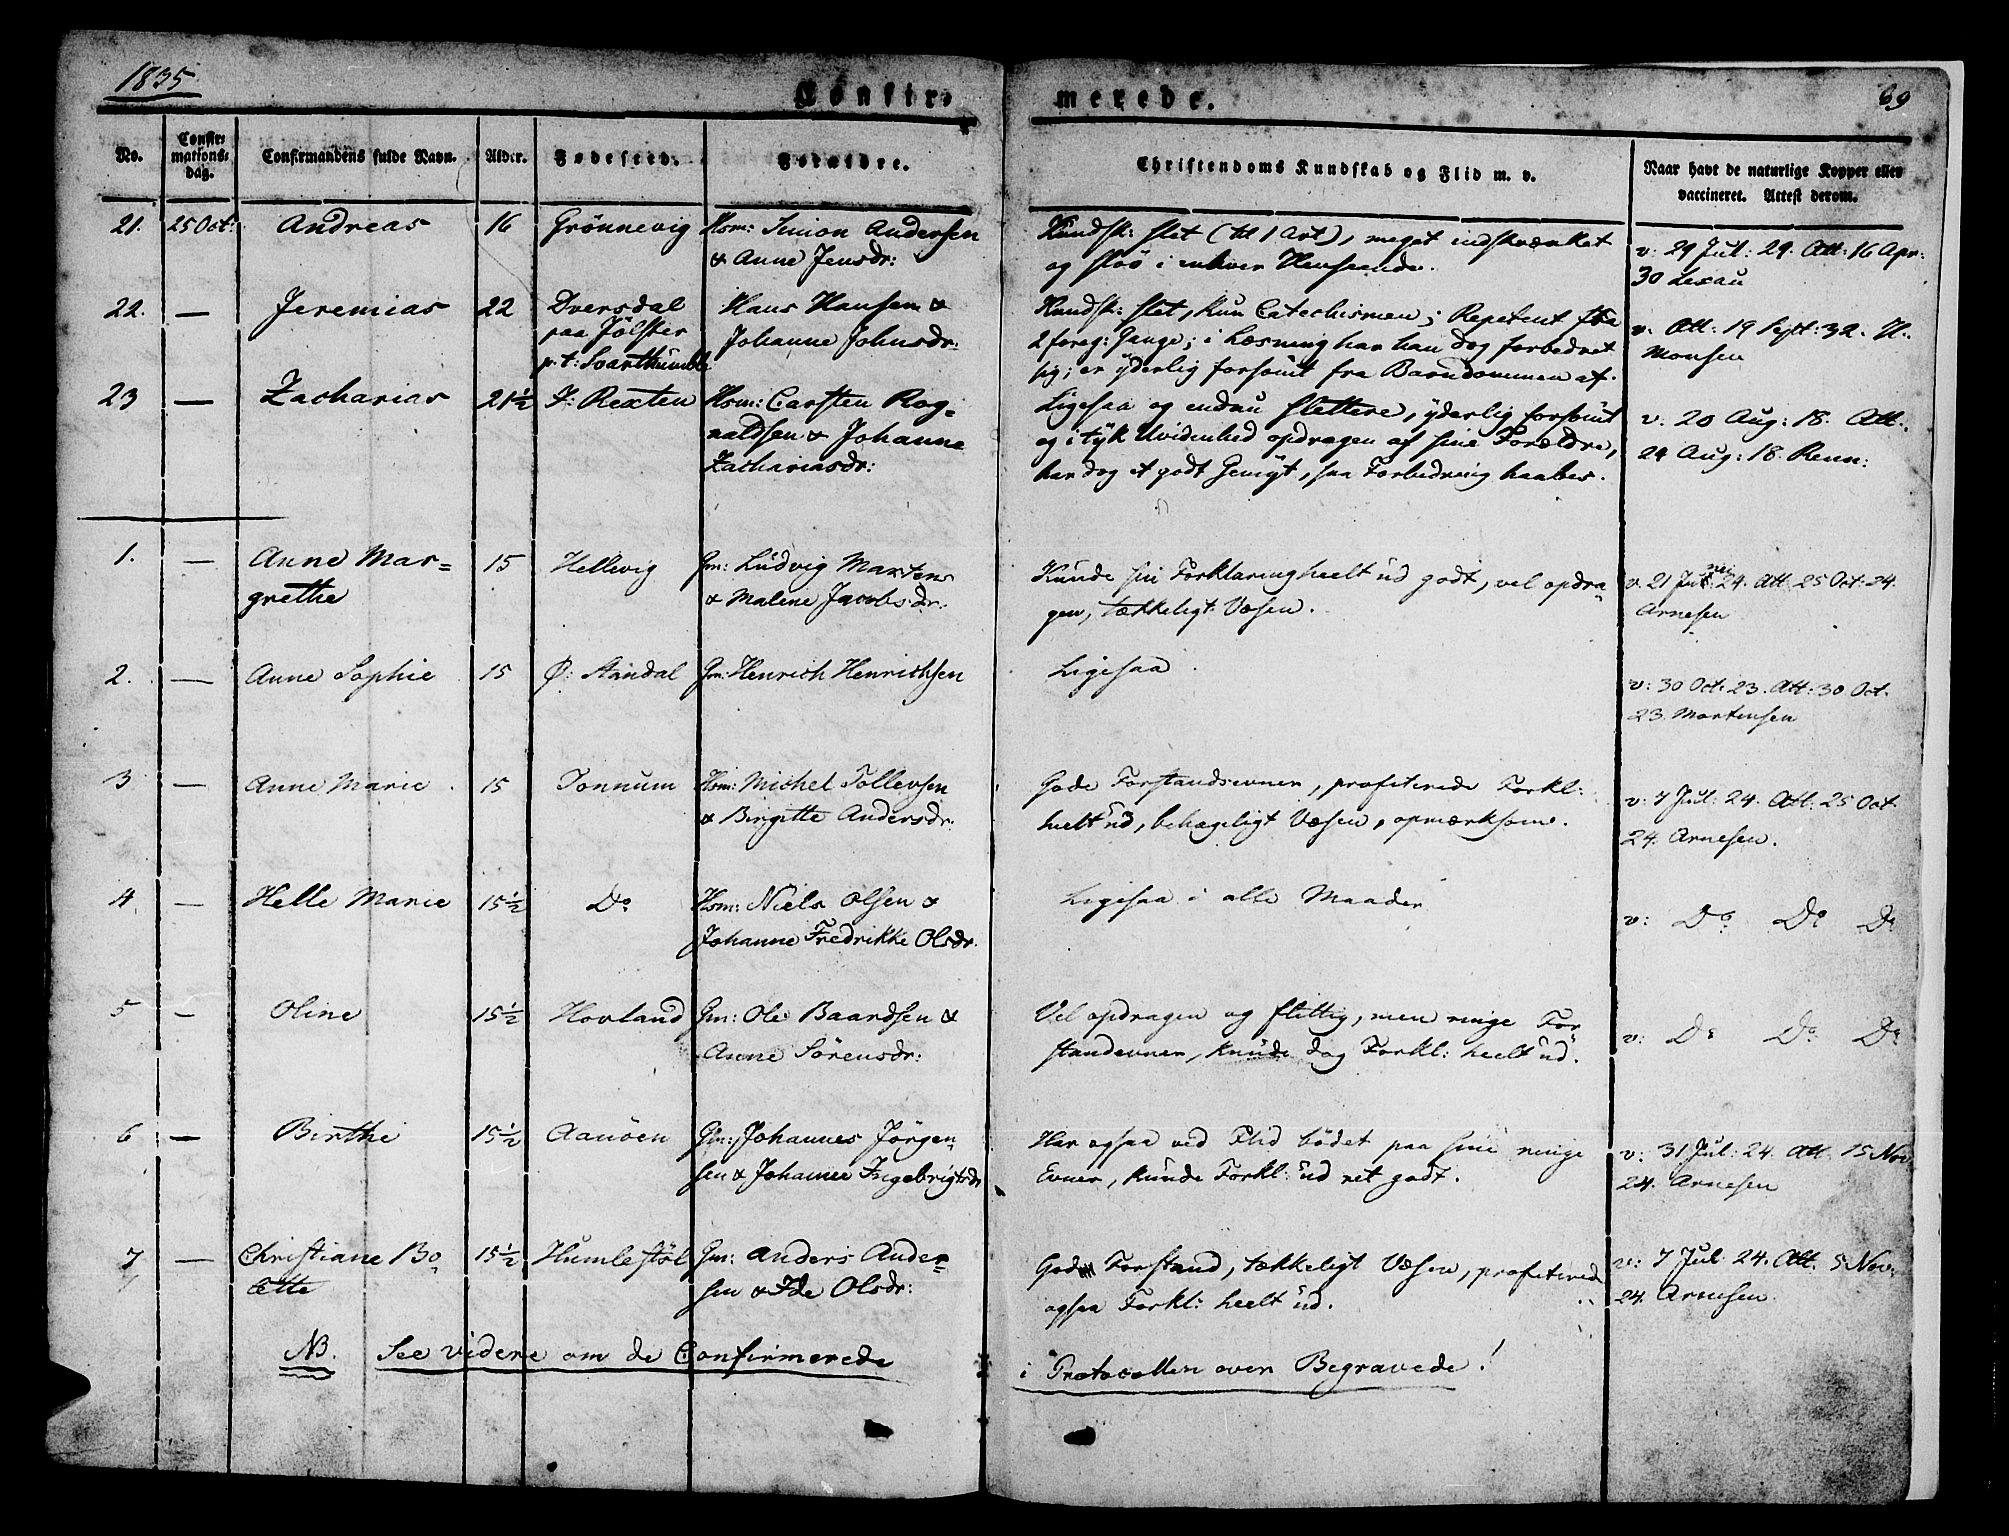 1835
Confir-
merede.
69
No.
Confir-
mations-
dag.
Confirmandens fulde Navn.
Alder.
Fødested.
Forældre.
Christendoms Kundskab og Flid m. v.
Naar havt de naturlige Kopper eller
vaccineret. Attest derom.
21. 25 Oct: Andreas 16 Grönnevig Hsm: Simon Andersen
& Anne Jensdr:
Kundsk: slet (til 1 Art), meget indskrænket
og sløv i enhver Henseende.
v: 29 Jul: 29. Att: 16 Apr:
30 Lexau
22. — Jeremias 22 Dversdal
paa Jölster
p.t: Svarthumle
Hans Hansen &
Johanne Johnsdr:
Kundsk: slet, kun Catechismen; Repetent fra
2 foreg: Gange; i Læsning har han dog forbedret
sig; er ÿderlig forsömt fra Barndommen af.
v: Att: 19 Sept: 32. H.
Monsen
23 — Zacharias 21½ I: Rexten Hsm: Carsten Rag-
naldsen & Johanne
Zachariasdr:
Ligesaa og endnu slettere, ÿderlig forsömt
og i tÿk Uvidenhed opdragen af sine Forældre,
har dog et godt Gemÿt, saa Forbedring haabes.
v. 20 Aug: 18. Att:
24 Aug: 18. Renn:
1. — Anne Mar=
grethe
15 Hellevig Gm: Ludvig Martens
& Malene Jacobsdr:
Kunde sin Forklaring heelt ud godt, vel opdra-
gen, tækkeligt Væsen.
v. 21 Juni 24. Att 25 Oct: 24.
Arnesen
2. — Anne Sophie 15 Ø: Aandal Gm: Henrich Henrichsen
Ligesaa.
v: 30 Oct: 23. Att: 30 Oct.
23. Mortensen
3 — Anne Marie 15 Tonnum Hsm: Michel Tollevsen
& Birgitte Andersdr:
Gode Forstandsevner, profiterede Forkl:
heelt ud, behageligt Væsen, opmærksom.
v: 7 Jul: 24. Att: 25 Oct
24. Arnesen.
4 — Helle Marie 15½ Do Hsm: Niels Olsen &
Johanne Fredrikke Olsdr.
Ligesaa i alle Maader
v: Do Do Do
5 — Oline 15½ Hovland Gm: Ole Baardsen &
Anne Sörensdr:
Vel opdragen og flittig, men ringe For-
standevner, kunde dog Forkl: heelt ud.
v: Do Do Do
6 — Birthe 15½ Aanöen Gm: Johannes Jörgen-
sen & Johanne Ingebrigtsdr
Har ogsaa ved Flid bödet paa sine ringe
Evner, kunde Forkl: ud ret godt.
v: 31 Jul: 24. Att. 15 Nov
24. Arnesen
7 — Christiane Bo-
lette
15½ Humlestöl Gm: Anders Ander-
sen & Ide Olsdr:
God Forstand, tækkeligt Væsen, profitered
ogsaa Forkl: heelt ud.
v: 7 Jul 24. Att: 5 Nov:
24. Arnesen.
NB. See videre om de Confirmerede
i Protocollen over Begravede!